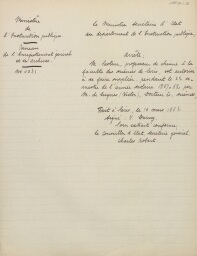 Ministère
de
l'Instruction publique
Division
de l'Enseignement général
et
Le Ministre Secrétaire d'Etat
au département de l'Instruction publique,
Arrête:
M. Pasteur, professeur de chimie à la
faculté des sciences de Paris, est autorisé
à se faire suppléer, pendant le 2e se-
mestre de l'année scolaire 1867-68, par
M. de Luynes (Victor), docteur ès sciences
Fait à Paris, le 10 mars 1868
Signé: V. Duruy
Pour extrait conforme,
le Conseiller d'Etat secrétaire général,
Charles Robert